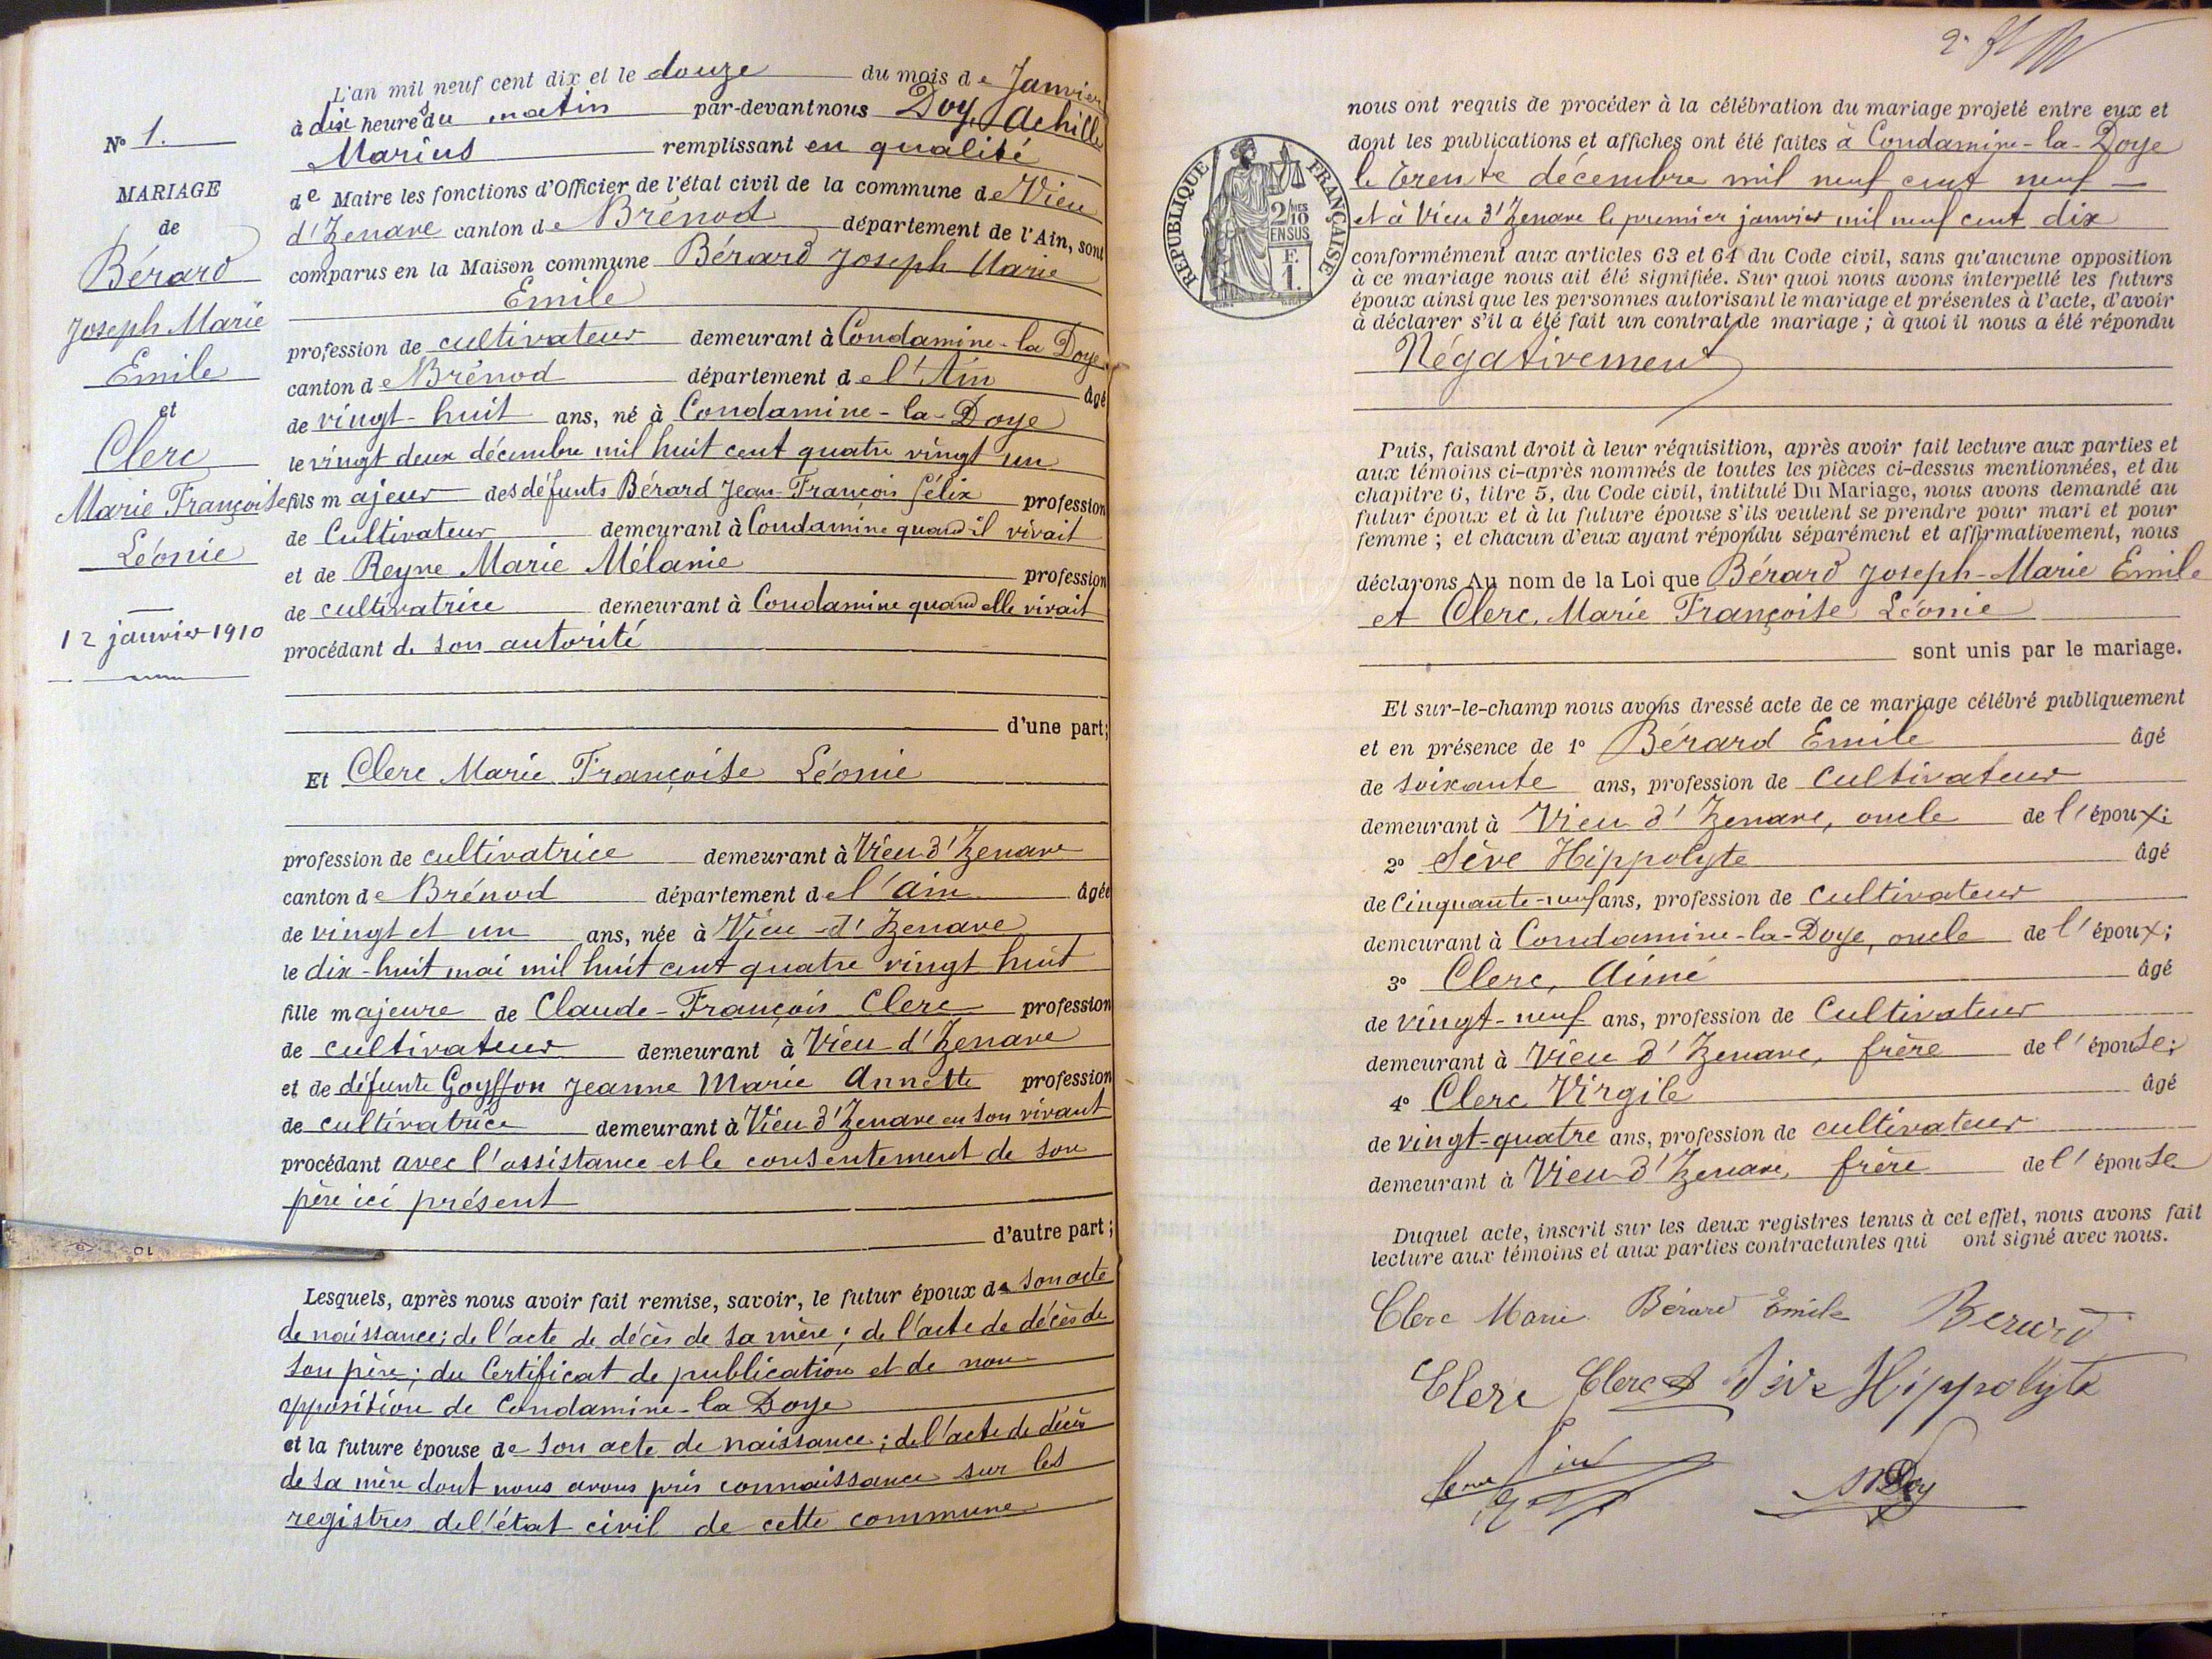 N° 1.
MARIAGE
de
Bérard
Joseph Marie
Emile
et
Clerc
Marie Françoise
Léonie
12 janvier 1910
L'an mil neuf cent dix et le douze du mois de Janvier
à dix heures du matin par-devant nous Doy, Achille
Marius remplissant en qualité
de Maire les fonctions d'Officier de l'état civil de la commune de Vieu
d'Izenave canton de Brénod département de l'Ain, sont
comparus en la Maison commune Bérard Joseph Marie
Emile
profession de cultivateur demeurant à Condamine-la Doye
canton de Brénod département de l'Ain âgé
de vingt-huit ans, né à Condamine-la-Doye
le vingt deux décembre mil huit cent quatre vingt un
fils majeur des défunts Bérard Jean-François Félix profession
de Cultivateur demeurant à Condamine quand il vivait
et de Reyne Marie Mélanie profession
de cultivatrice demeurant à Condamine quand elle vivait
procédant de son autorité
d'une part;
Et Clerc Marie Françoise Léonie
profession de cultivatrice demeurant à Vieu d'Izenave
canton de Brénod département de l'Ain âgée
de vingt et un ans, née à Vieu-d'Izenave
le dix-huit mai mil huit cent quatre vingt huit
fille majeure de Claude-François Clerc profession
de cultivateur demeurant à Vieu d'Izenave
et de défunte Goyffon Jeanne Marie Annette profession
de cultivatrice demeurant à Vieu d'Izenave en son vivant
procédant avec l'assistance et le consentement de son
père ici présent
d'autre part;
Lesquels, après nous avoir fait remise, savoir, le futur époux de son acte
de naissance; de l'acte de décès de sa mère; de l'acte de décès de
son père; du Certificat de publication et de non
opposition de Condamine-la Doye
et la future épouse de son acte de naissance; de l'acte de décès
de sa mère dont nous avons pris connaissance sur les
registres de l'état civil de cette commune
REPUBLIQUE FRANÇAISE
2/10
EN SUS
F.
1.
nous ont requis de procéder à la célébration du mariage projeté entre eux et
dont les publications et affiches ont été faites à Condamine-la-Doye
le trente décembre mil neuf cent neuf
et à Vieu d'Izenave le premier janvier mil neuf cent dix
conformément aux articles 63 et 64 du Code civil, sans qu'aucune opposition
à ce mariage nous ait été signifiée. Sur quoi nous avons interpellé les futurs
époux ainsi que les personnes autorisant le mariage et présentes à l'acte, d'avoir
à déclarer s'il a été fait un contrat de mariage; à quoi il nous a été répondu
Négativement
Puis, faisant droit à leur réquisition, après avoir fait lecture aux parties et
aux témoins ci-après nommés de toutes les pièces ci-dessus mentionnées, et du
chapitre 6, titre 5, du Code civil, intitulé Du Mariage, nous avons demandé au
futur époux et à la future épouse s'ils veulent se prendre pour mari et pour
femme; et chacun d'eux ayant répondu séparément et affirmativement, nous
déclarons Au nom de la Loi que Bérard Joseph-Marie Emile
et Clerc, Marie Françoise Léonie
sont unis par le mariage.
Et sur-le-champ nous avons dressé acte de ce mariage célébré publiquement
et en présence de 1° Bérard Emile âgé
de soixante ans, profession de Cultivateur
demeurant à Vieu d'Izenave, oncle de l'époux;
2° Sève Hippolyte âgé
de Cinquante-neuf ans, profession de Cultivateur
demeurant à Condamine-la-Doye, oncle de l'époux;
3° Clerc, Aimé âgé
de vingt-neuf ans, profession de Cultivateur
demeurant à Vieu d'Izenave, frère de l'épouse;
4° Clerc Virgile âgé
de vingt-quatre ans, profession de cultivateur
demeurant à Vieu d'Izenave, frère de l'épouse
Duquel acte, inscrit sur les deux registres tenus à cet effet, nous avons fait
lecture aux témoins et aux parties contractantes qui ont signé avec nous.
Clerc Marie Bérard Emile Berard
Clerc Clerc Sève Hippolyte
Doy